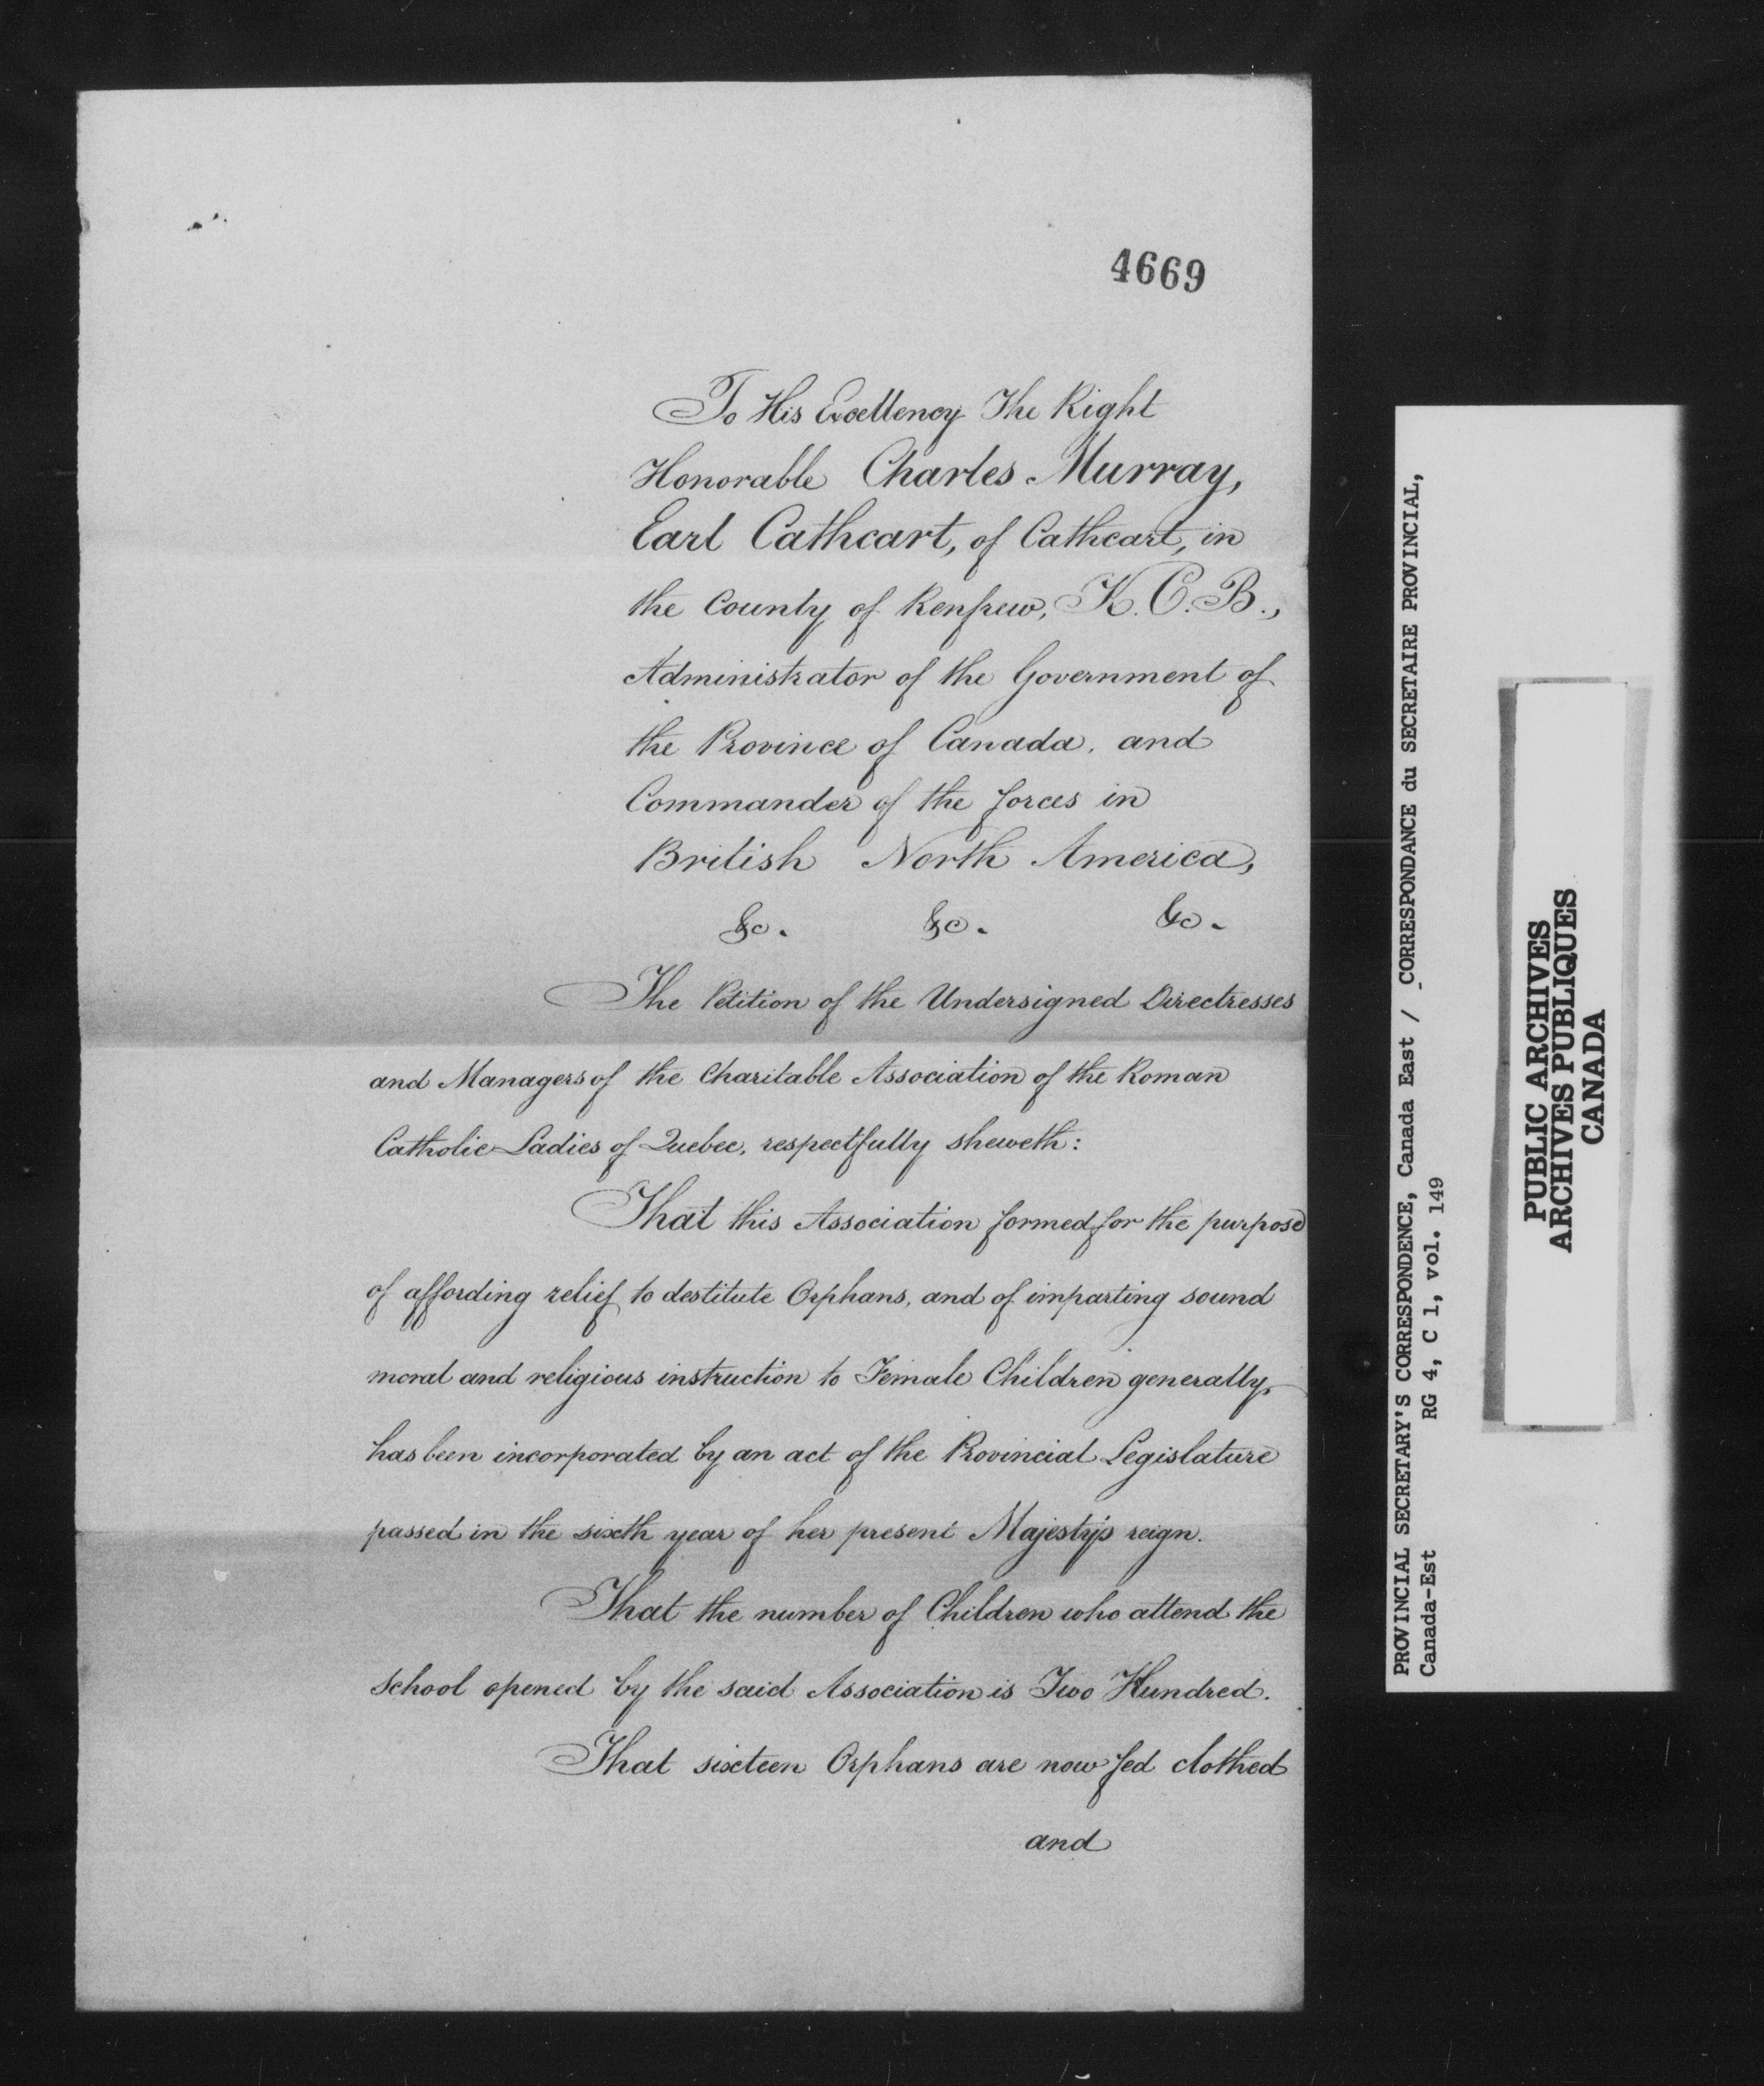 4669
To His Excellency The Right
Honorable Charles Murray,
Earl Cathcart, of Cathcart, in
the County of Renfrew, K.C.B.,
Administrator of the Government of
the Province of Canada, and
Commander of the forces in
British North America,
&c. &c. &c.
The Petition of the Undersigned Directresses
and Managers of the Charitable Association of the Roman
Catholic Ladies of Quebec, respectfully sheweth:
That this Association formed for the purpose
of affording relief to destitute Orphans, and of imparting sound
moral and religious instruction to Female Children generally,
has been incorporated by an act of the Provincial Legislature
passed in the sixth year of her present Majesty's reign.
That the number of Children who attend the
School opened by the said Association is Two Hundred.
That sixteen Orphans are now fed clothed
and
PROVINCIAL SECRETARY'S CORRESPONDENCE, Canada East / CORRESPONDANCE du SECRETAIRE PROVINCIAL,
Canada-Est RG 4, C 1, vol. 149
PUBLIC ARCHIVES
ARCHIVES PUBLIQUES
CANADA